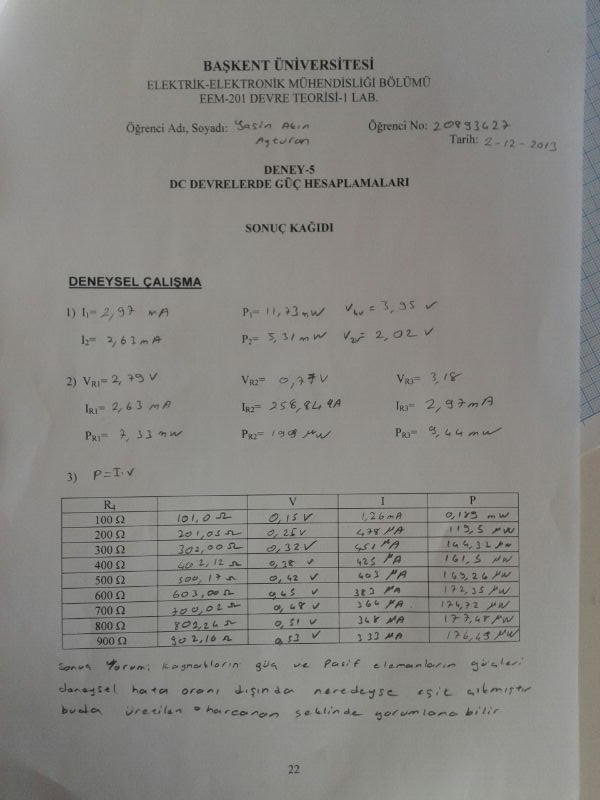 BAŞKENT ÜNİVERSİTESİ
ELEKTRİK-ELEKTRONİK MÜHENDİSLİĞİ BÖLÜMÜ
EEM-201 DEVRE TEORİSİ-1 LAB.
Öğrenci Adı, Soyadı: Yasin Akın Öğrenci No: 20893627
Ayturan Tarih: 2-12-2013
DENEY-5
DC DEVRELERDE GÜÇ HESAPLAMALARI
SONUÇ KAĞIDI
DENEYSEL ÇALIŞMA
1) I1= 2,97 mA P1= 11,73 mW V4V = 3,95 V
I2= 2,63 mA P2= 5,31 mW V2V= 2,02 V
2) VR1= 2,79 V VR2= 0,77 V VR3= 3,18
IR1= 2,63 mA IR2= 258,84 μA IR3= 2,97 mA
PR1= 7,33 mW PR2= 199 μW PR3= 9,44 mW
3) P=I.V
R4 V I P
100 Ω 101,0 Ω 0,15 V 1,26 mA 0,189 mW
200 Ω 201,05 Ω 0,25 V 478 μA 119,5 μW
300 Ω 302,00 Ω 0,32 V 451 μA 144,32 μW
400 Ω 402,12 Ω 0,38 V 425 μA 161,5 μW
500 Ω 500,17 Ω 0,42 V 403 μA 169,26 μW
600 Ω 603,00 Ω 0,45 V 383 μA 172,35 μW
700 Ω 700,02 Ω 0,48 V 364 μA 174,72 μW
800 Ω 802,26 Ω 0,51 V 348 μA 177,48 μW
900 Ω 902,16 Ω 0,53 V 333 μA 176,49 μW
Sonuç Yorum: Kaynakların güç ve Pasif elemanların güçleri
deneysel hata oranı dışında neredeyse eşit çıkmıştır
buda üretilen = harcanan şeklinde yorumlana bilir
22